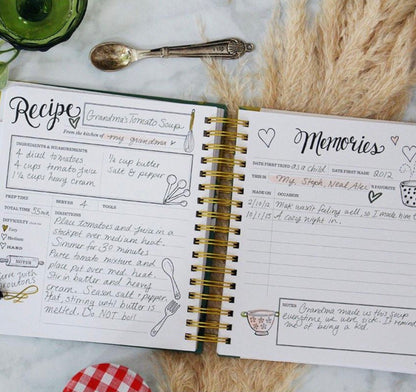 Recipe
Grandma's Tomato Soup
From the kitchen of my grandma
INGREDIENTS & MEASUREMENTS
4 diced tomatoes
4 cups tomato juice
1 ½ cups heavy cream
¼ cup butter
Salt & pepper
PREP TIME
SERVES 4
TOOLS
TOTAL TIME 35
DIFFICULTY
Easy
Medium
HARD
DIRECTIONS
Place tomatoes and juice in a
stockpot over medium heat.
Simmer for 30 minutes
Puree tomato mixture and
place pot over med. heat.
Stir in butter and heavy
cream. Season salt & pepper.
Heat, stirring until butter is
melted. Do NOT boil
NOTES
Puree with
Memories
DATE FIRST TRIED as a child
DATE FIRST MADE 2012
THIS IS
My, Steph, Neal, Alex
'S FAVORITE
MADE ON
OCCASION
2/10/12 Mak wasn't feeling well, so I made him
10/1/13 A cozy night in.
NOTES
Grandma made us this soup
everytime we were sick. It reminds
me of being a kid.